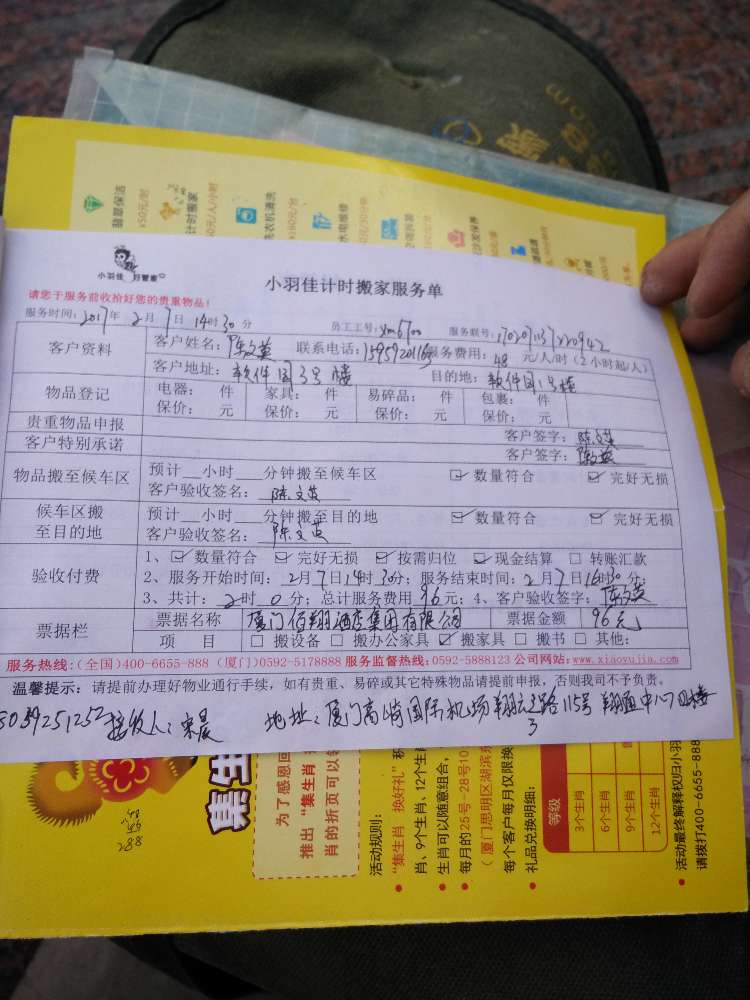 翡翠保洁
¥50元/时
计时搬家
洗衣机清洗
水电维修
小羽佳 好管家
小羽佳计时搬家服务单
请您于服务前收拾好您的贵重物品！
服务时间：2017年2月7日14时30分 员工工号：xm6700 服务联号：
客户资料 客户姓名：陈文英 联系电话： 服务费用：48元/人/时（2小时起/人）
客户地址：软件园3号楼 目的地：软件园1号楼
物品登记 电器： 件 家具： 件 易碎品： 件 包裹： 件
保价： 元 保价： 元 保价： 元 保价： 元
贵重物品申报 客户签字：陈文英
客户特别承诺 客户签字：陈文英
物品搬至候车区 预计__小时___分钟搬至候车区 ☑数量符合 ☑完好无损
客户验收签名：陈文英
候车区搬至目的地 预计__小时___分钟搬至目的地 ☑数量符合 ☑完好无损
客户验收签名：陈文英
验收付费 1、☑数量符合 ☑完好无损 ☑按需归位 ☑现金结算 □转账汇款
2、服务开始时间：2月7日14时30分；服务结束时间：2月7日16时30分；
3、共计：2时0分；总计服务费用96元；4、客户验收签字：陈文英
票据栏 票据名称 厦门佰翔酒店集团有限公司 票据金额 96元
项目 □搬设备 □搬办公家具 ☑搬家具 □搬书 □其他：
服务热线：(全国)400-6655-888 (厦门)0592-5178888 服务监督热线：0592-5888123 公司网站：www.xiaoyujia.com
温馨提示：请提前办理好物业通行手续，如有贵重、易碎或其它特殊物品请提前申报，否则我司不予负责。
8039251252 接收人：宋晨 地址：厦门高崎国际机场翔云路115号 翔通中心 楼
3
集生
为了感恩回
推出“集生肖
肖的折页可以
活动规则：
“集生肖 换好礼”积
肖、9个生肖、12个生
生肖可以随意组合，
每月的25号-28号10
（厦门思明区湖滨
每个客户每月仅限换
礼品兑换明细：
等级
3个生肖
6个生肖
9个生肖
12个生肖
活动最终解释权归小羽
请拨打400-6655-888